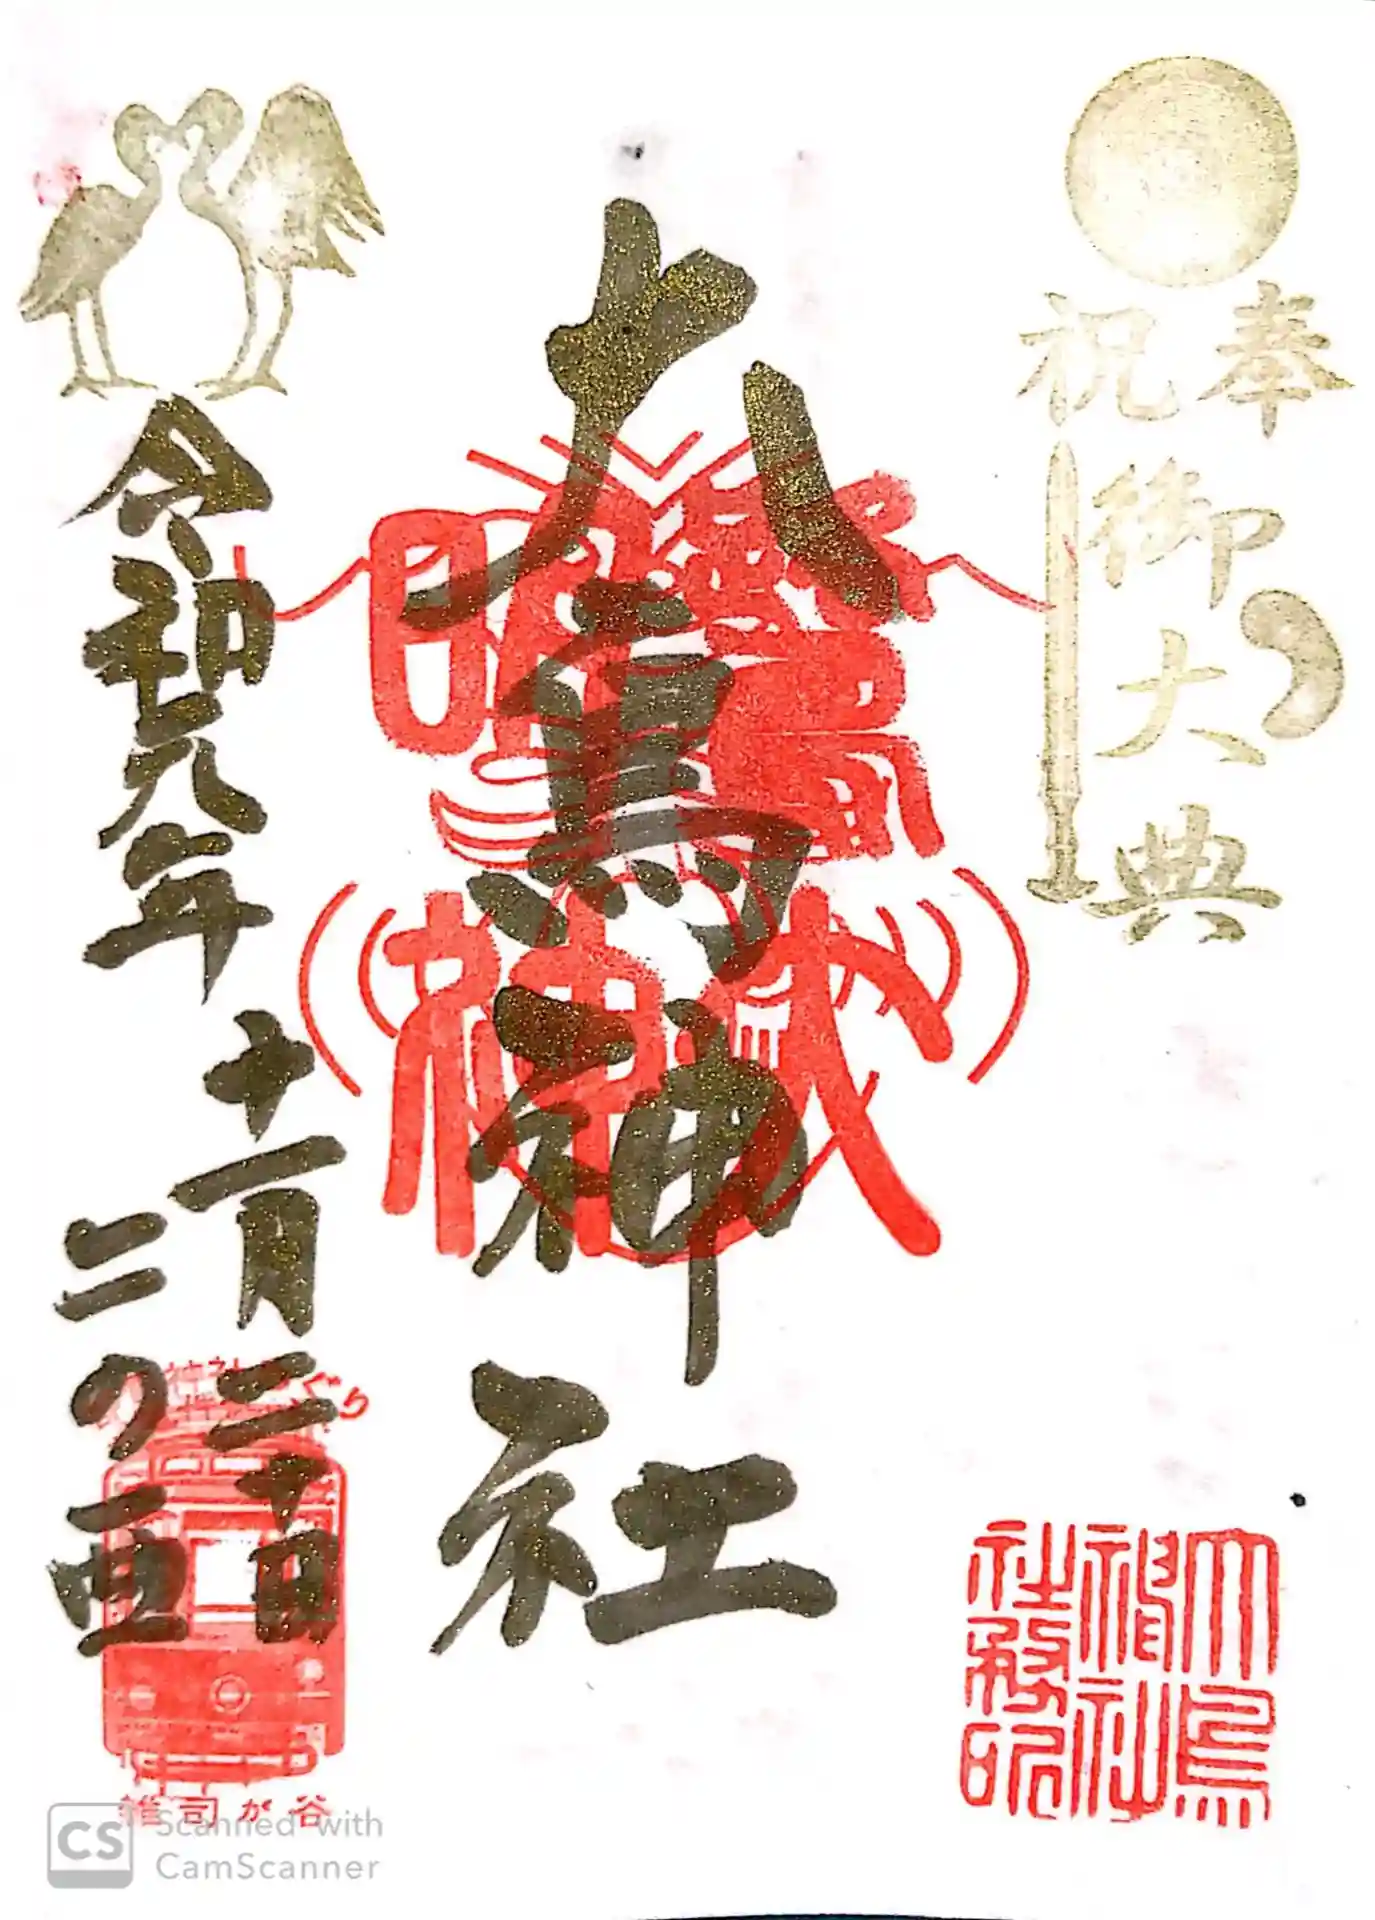 奉祝
御大典
大鳥神社
令和元年
十一月二十日
二の酉
神社めぐり
雑司が谷
大鳥
神社
社務印
CS Scanned with
CamScanner